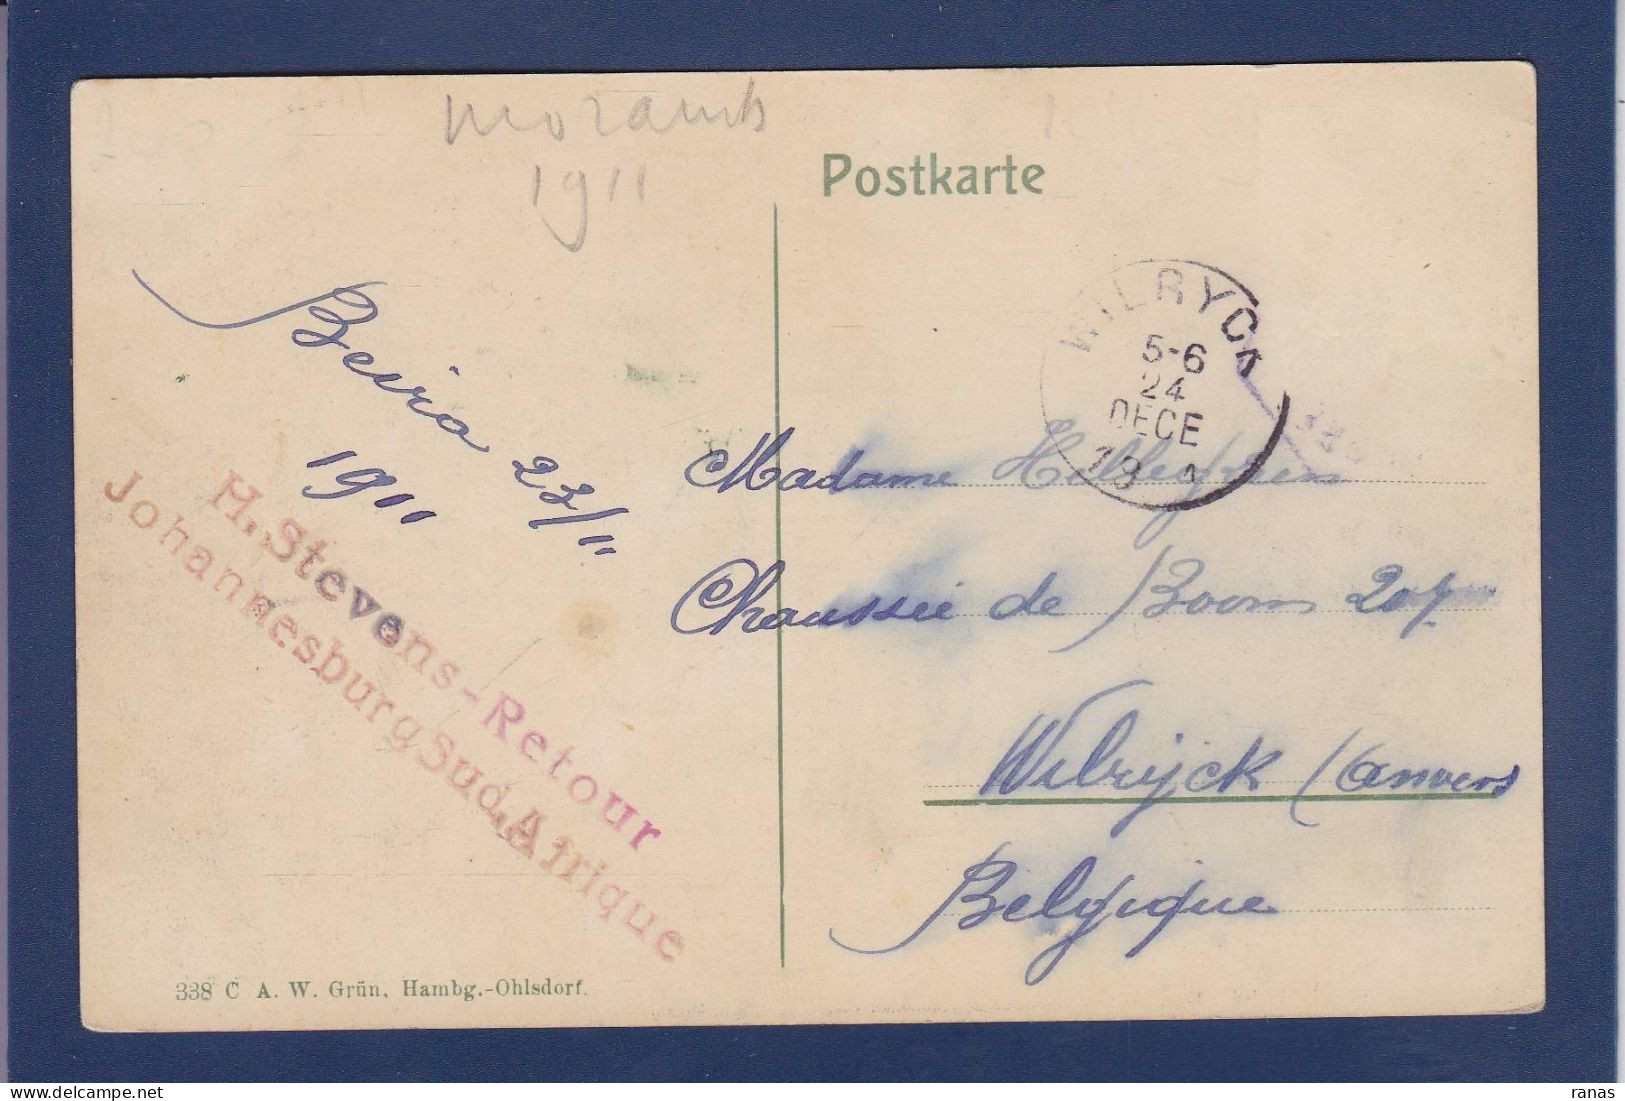 Mozamb
1911
Postkarte
Beira 23/11
1911
WILRYCK
5-6
24
DECE
H. Stevens-Retour
Johannesburg Sud, Afrique
Madame
Chaussée de Boom 207
Wilryck (Anvers
Belgique
338 C A. W. Grün, Hambg.-Ohlsdorf.
ranas